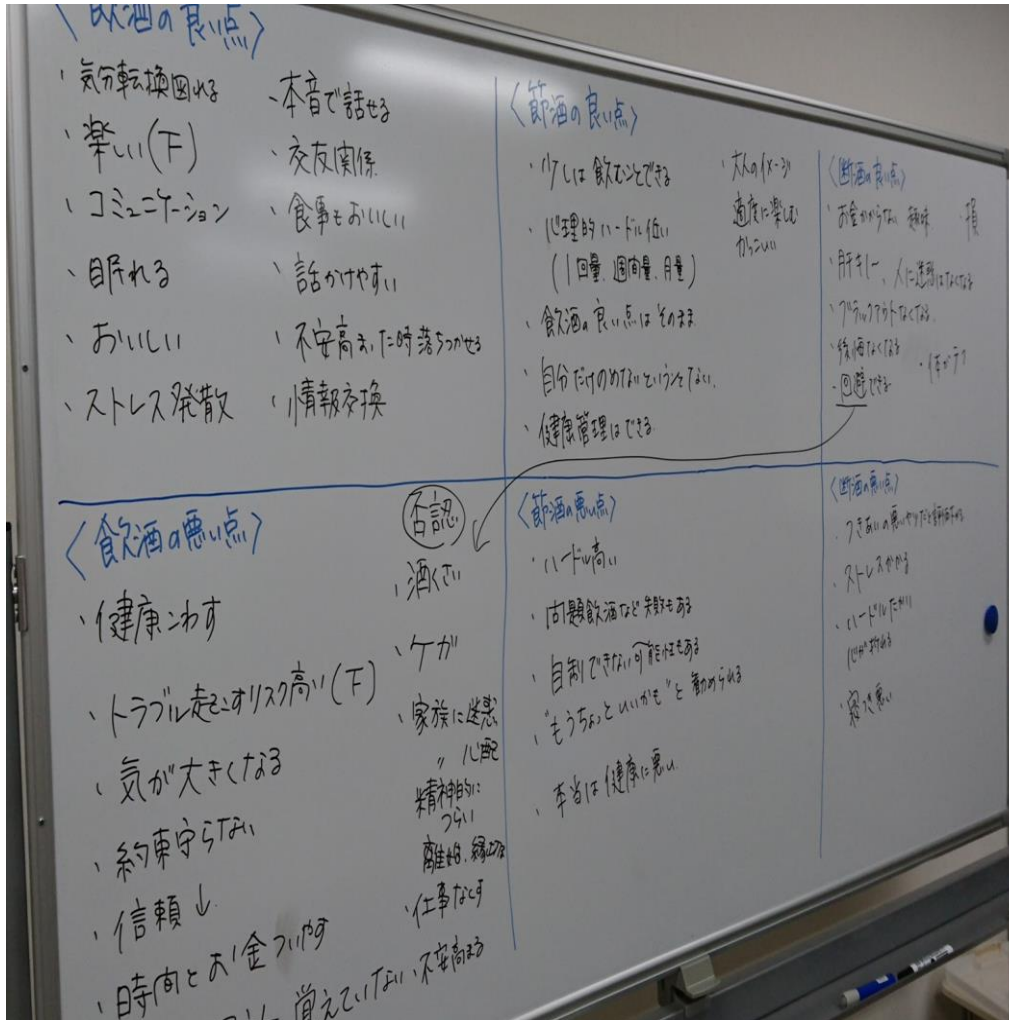 〈飲酒の良い点〉
・気分転換図れる
・楽しい(下)
・コミュニケーション
・眠れる
・おいしい
・ストレス発散
・本音で話せる
・交友関係
・食事もおいしい
・話かけやすい
・不安高まった時落ちつかせる
・情報交換
〈節酒の良い点〉
・少しは飲むことできる
・心理的ハードル低い
(1回量、週間量、月量)
・飲酒の良い点はそのまま
・自分だけのめないということない
・健康管理はできる
・大人のイメージ
適度に楽しむ
かっこいい
〈断酒の良い点〉
・お金かからない 趣味
・損
・肝キレー
人に迷惑はなくなる
・ブラックアウトなくなる
・後悔なくなる
・回避できる
・体が
〈飲酒の悪い点〉
・健康こわす
・トラブル起こすリスク高い(下)
・気が大きくなる
・約束守らない
・信頼↓
・時間とお金ついやす
覚えていない
否認
・酒くさい
・ケガ
・家族に迷惑
〃 心配
精神的に
つらい
離婚、
・仕事なくす
・不安高まる
〈節酒の悪い点〉
・ハードル高い
・問題飲酒など失敗もある
・自制できない可能性もある
・"もうちょっといいかも"と勧められる
・本当は健康に悪い
〈断酒の悪い点〉
・つきあいの悪いやつだと
・ストレスかかる
・ハードルたかい
心が折れる
・寝つき悪い